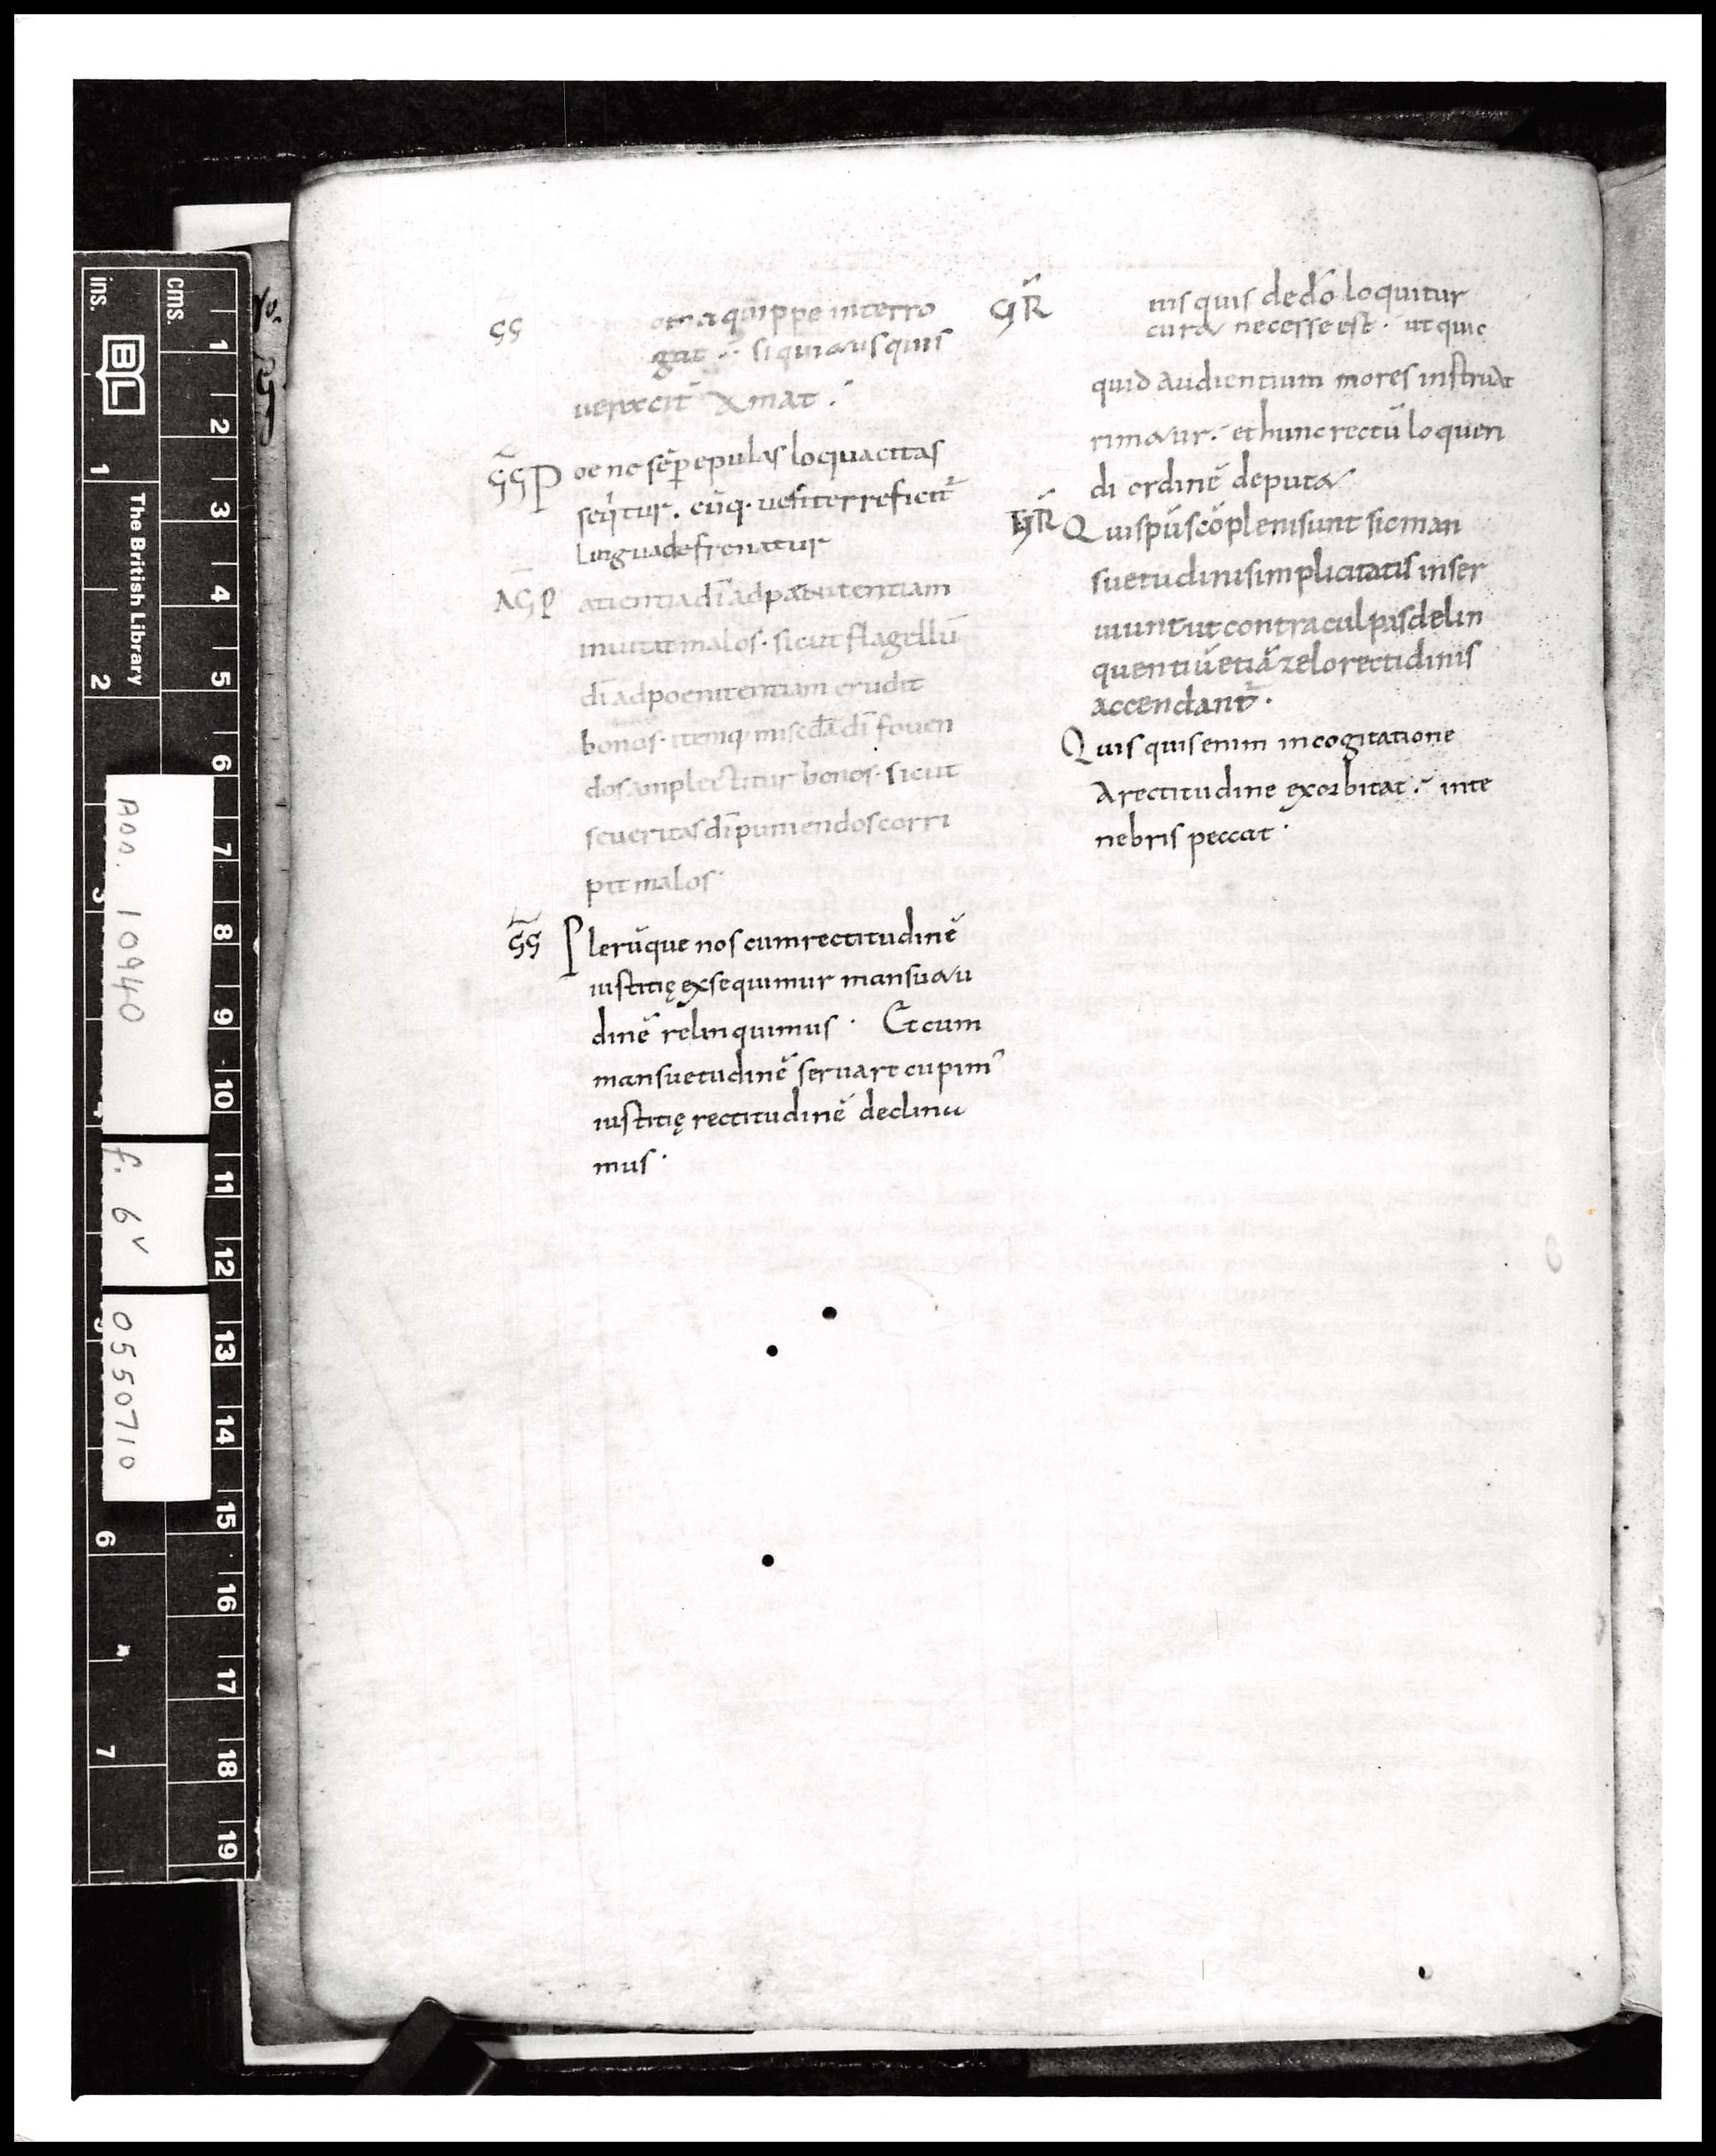 ꞔꞔ
quippe interro
gat ⁖ si quis
GG P oene sēp epulas loquacitas
seq̇tur. cūq· uenter reficit᷑
lingua defrenatur
AG P atientia dī ad paenitentiam
inuitat malos· sicut flagellū
dī ad poenitentiam erudit
bonos· itemq· miscd̄a dī fouen
dos amplectitur bonos· sicut
seueritas dī puniendos corri
pit malos·
GG P lerūque nos cum rectitudinē
iustitię exsequimur mansuetu
dinē relinquimus · Et cum
mansuetudinē seruare cupim᾿
iustitię rectitudinē declina
mus ·
GR̄
uisquis de dō loquitur
curet necesse est · ut quic
quid audientium mores instruat
rimetur· et hunc rectū loquen
di ordinē deputet
GR̄ Q uisp̄us cō pleni sunt sic man
suetudini simplicitatis inser
uiunt ut contra culpas delin
quentiū etiā zelo rectidinis
accendant᷑ ·
Q uisquis enim in cogitatione
A rectitudine exorbitat · in te
nebris peccat ·
cms.
ins.
BL
The British Library
1 2 3 4 5 6 7 8 9 10 11 12 13 14 15 16 17 18 19
1 2 3 6 7
ADD. 10940
f. 6v
0550710